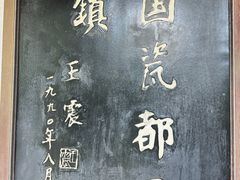 国瓷都
鎮
王震
一九九〇年八月